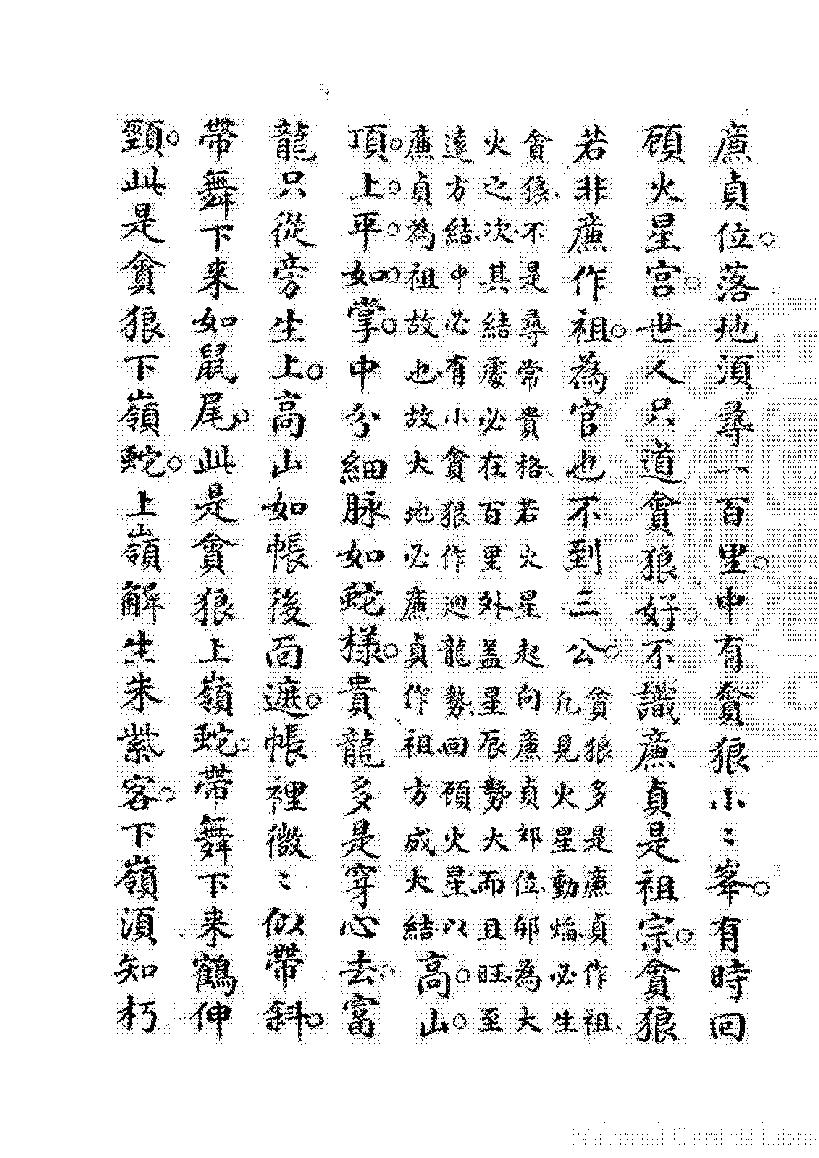 廉貞位。落地須尋一百里。中有貪狼小〻峯。有時回
顧火星宮。世人只道貪狼好。不識廉貞是祖宗。貪狼
若非廉作祖。為官也不到三公。
貪狼多是廉貞作祖
凡見火星動焰必生
貪狼不是尋常貴格若火星起向廉貞祁位卻為大
火之次其結處必在百里外蓋星辰勢大而且旺至
遠方結中必有小貪狼作迴龍勢回顧火星以
廉貞為祖故也故大地必廉貞作祖方成大結
高。山。
頂。上。平。如。掌。中分細脉如蛇樣。貴龍多是穿心去。富
龍只從旁生上。高山如帳後面遮。帳裡微〻似帶斜。
帶舞下来如鼠尾。此是貪狼上嶺蛇。帶舞下来鶴伸
頸。此是貪狼下嶺蛇。上嶺解生朱紫客。下嶺須知朽